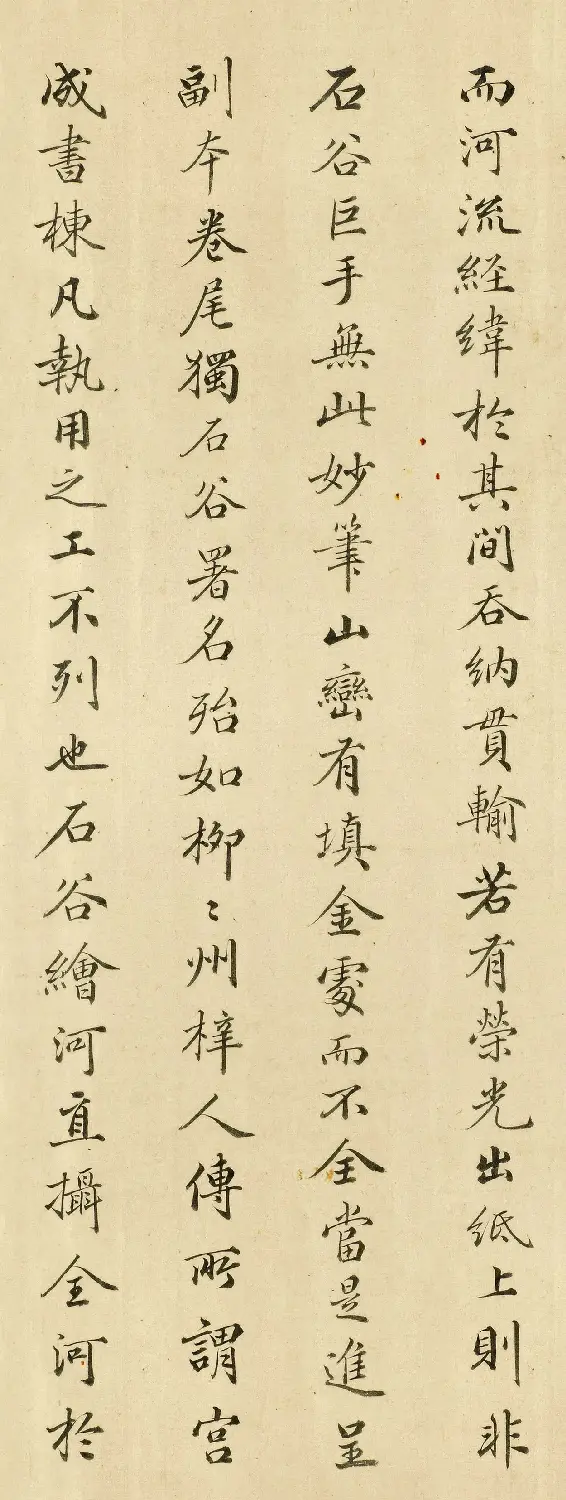 而河流経緯於其間吞納貫輸若有榮光出紙上則非
石谷巨手無此妙筆山巒有填金處而不全當是進呈
副本卷尾獨石谷署名殆如柳〻州梓人傳所謂宮
成書棟凡執用之工不列也石谷繪河直攝全河於